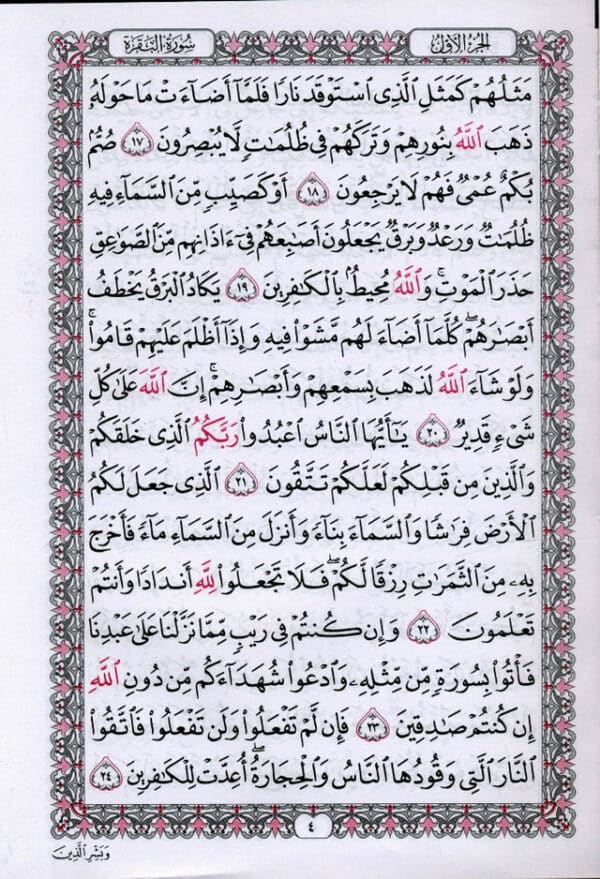 الجزء الأول
سورة البقرة
مَثَلُهُمْ كَمَثَلِ ٱلَّذِى ٱسْتَوْقَدَ نَارًا فَلَمَّآ أَضَآءَتْ مَا حَوْلَهُۥ
ذَهَبَ ٱللَّهُ بِنُورِهِمْ وَتَرَكَهُمْ فِى ظُلُمَٰتٍ لَّا يُبْصِرُونَ ١٧ صُمٌّۢ
بُكْمٌ عُمْىٌ فَهُمْ لَا يَرْجِعُونَ ١٨ أَوْ كَصَيِّبٍ مِّنَ ٱلسَّمَآءِ فِيهِ
ظُلُمَٰتٌ وَرَعْدٌ وَبَرْقٌ يَجْعَلُونَ أَصَٰبِعَهُمْ فِىٓ ءَاذَانِهِم مِّنَ ٱلصَّوَٰعِقِ
حَذَرَ ٱلْمَوْتِ ۚ وَٱللَّهُ مُحِيطٌۢ بِٱلْكَٰفِرِينَ ١٩ يَكَادُ ٱلْبَرْقُ يَخْطَفُ
أَبْصَٰرَهُمْ ۖ كُلَّمَآ أَضَآءَ لَهُم مَّشَوْا۟ فِيهِ وَإِذَآ أَظْلَمَ عَلَيْهِمْ قَامُوا۟ ۚ
وَلَوْ شَآءَ ٱللَّهُ لَذَهَبَ بِسَمْعِهِمْ وَأَبْصَٰرِهِمْ ۚ إِنَّ ٱللَّهَ عَلَىٰ كُلِّ
شَىْءٍ قَدِيرٌ ٢٠ يَٰٓأَيُّهَا ٱلنَّاسُ ٱعْبُدُوا۟ رَبَّكُمُ ٱلَّذِى خَلَقَكُمْ
وَٱلَّذِينَ مِن قَبْلِكُمْ لَعَلَّكُمْ تَتَّقُونَ ٢١ ٱلَّذِى جَعَلَ لَكُمُ
ٱلْأَرْضَ فِرَٰشًا وَٱلسَّمَآءَ بِنَآءً وَأَنزَلَ مِنَ ٱلسَّمَآءِ مَآءً فَأَخْرَجَ
بِهِۦ مِنَ ٱلثَّمَرَٰتِ رِزْقًا لَّكُمْ ۖ فَلَا تَجْعَلُوا۟ لِلَّهِ أَندَادًا وَأَنتُمْ
تَعْلَمُونَ ٢٢ وَإِن كُنتُمْ فِى رَيْبٍ مِّمَّا نَزَّلْنَا عَلَىٰ عَبْدِنَا
فَأْتُوا۟ بِسُورَةٍ مِّن مِّثْلِهِۦ وَٱدْعُوا۟ شُهَدَآءَكُم مِّن دُونِ ٱللَّهِ
إِن كُنتُمْ صَٰدِقِينَ ٢٣ فَإِن لَّمْ تَفْعَلُوا۟ وَلَن تَفْعَلُوا۟ فَٱتَّقُوا۟
ٱلنَّارَ ٱلَّتِى وَقُودُهَا ٱلنَّاسُ وَٱلْحِجَارَةُ ۖ أُعِدَّتْ لِلْكَٰفِرِينَ ٢٤
٤
وَبَشِّرِ ٱلَّذِينَ